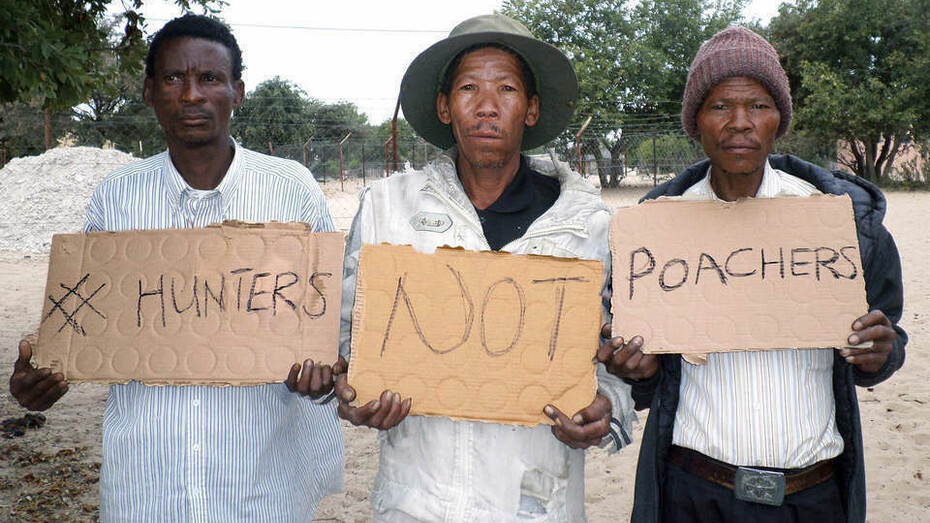 HUNTERS
NOT
POACHERS